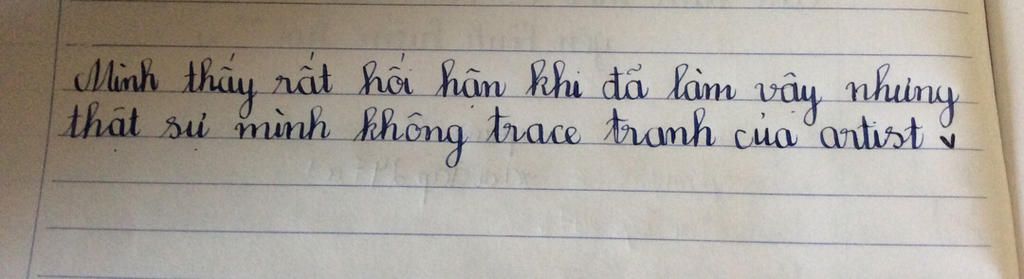 Mình thấy rất hối hận khi đã làm vậy nhưng
thật sự mình không trace tranh của artist v